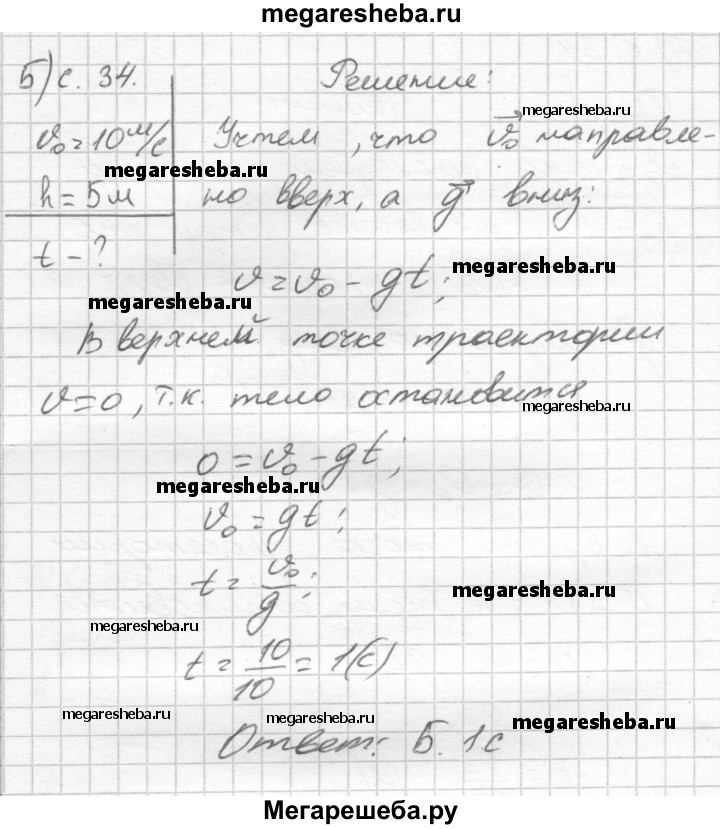 megaresheba.ru
5) с. 34.
Решение:
v₀ = 10 м/с
Учтем, что v⃗₀ направле-
megaresheba.ru
megaresheba.ru
h = 5 м
но вверх, а g⃗ вниз:
t - ?
v = v₀ - gt;
megaresheba.ru
megaresheba.ru
В верхней точке траектории
v = 0, т.к. тело остановится
megaresheba.ru
0 = v₀ - gt;
megaresheba.ru
v₀ = gt;
t = v₀/g;
megaresheba.ru
megaresheba.ru
t = 10/10 = 1(с)
megaresheba.ru
megaresheba.ru
megaresheba.ru
Ответ: Б. 1с
Мегарешеба.ру